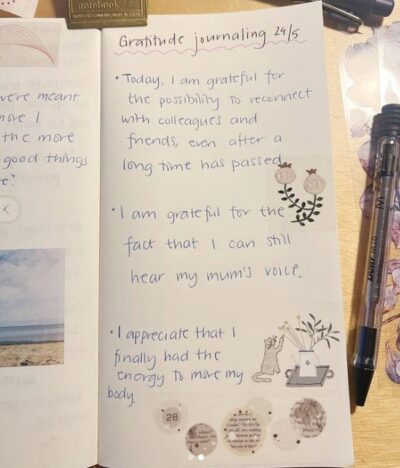 notebook
were meant
more I
the more
good things
Gratitude journaling 24/5
• Today, I am grateful for
the possibility to reconnect
with colleagues and
friends, even after a
long time has passed.
• I am grateful for the
fact that I can still
hear my mum's voice.
• I appreciate that I
finally had the
energy to move my
body.
28